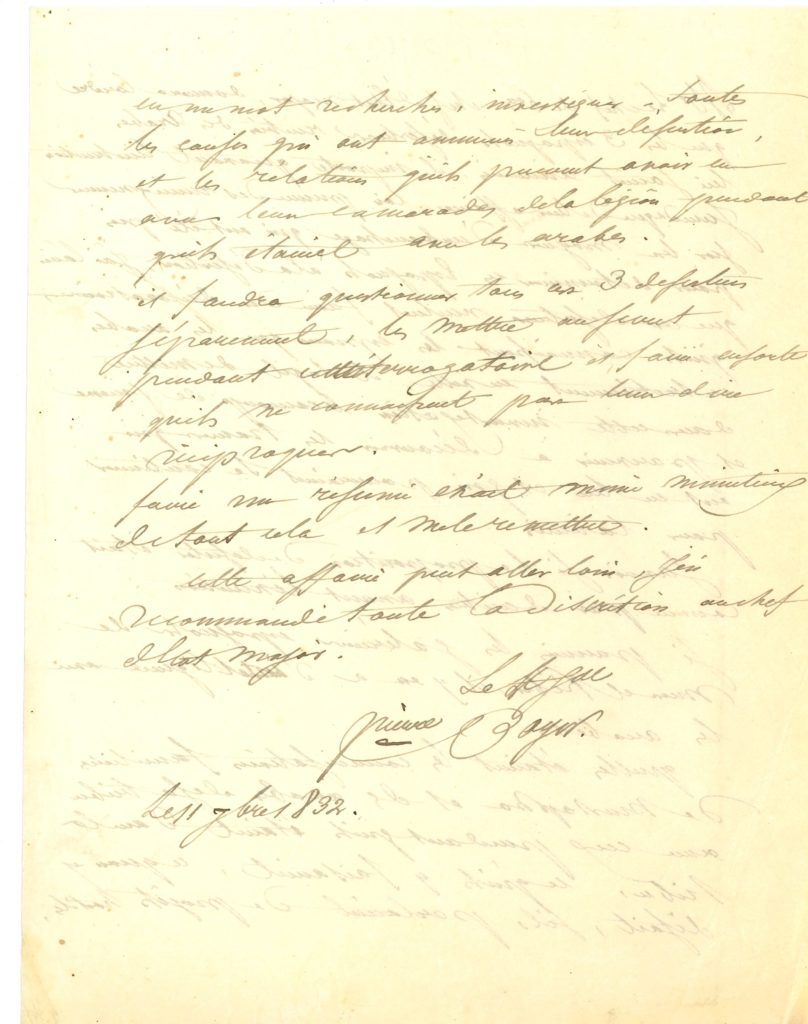 en un mot rechercher, investiguer, toutes
les causes qui ont amenées leur désertion,
et les relations qu'ils peuvent avoir eu
avec leur camarades de la légion pendant
qu'ils étaient avec les arabes.
il faudra questionner tous ces 3 deserteurs
séparément, les mettre au secret
pendant cet interrogatoire et faire ensorte
qu'ils ne connaissent pas leur dire
réciproques.
faire un résumé exact même minutieux
de tout cela et me le remettre.
cette affaire peut aller loin, j'en
recommande toute la discrétion au chef
d'Etat major.
Le Lt Gal
pierre Boyer.
Le 11 7bre 1832.